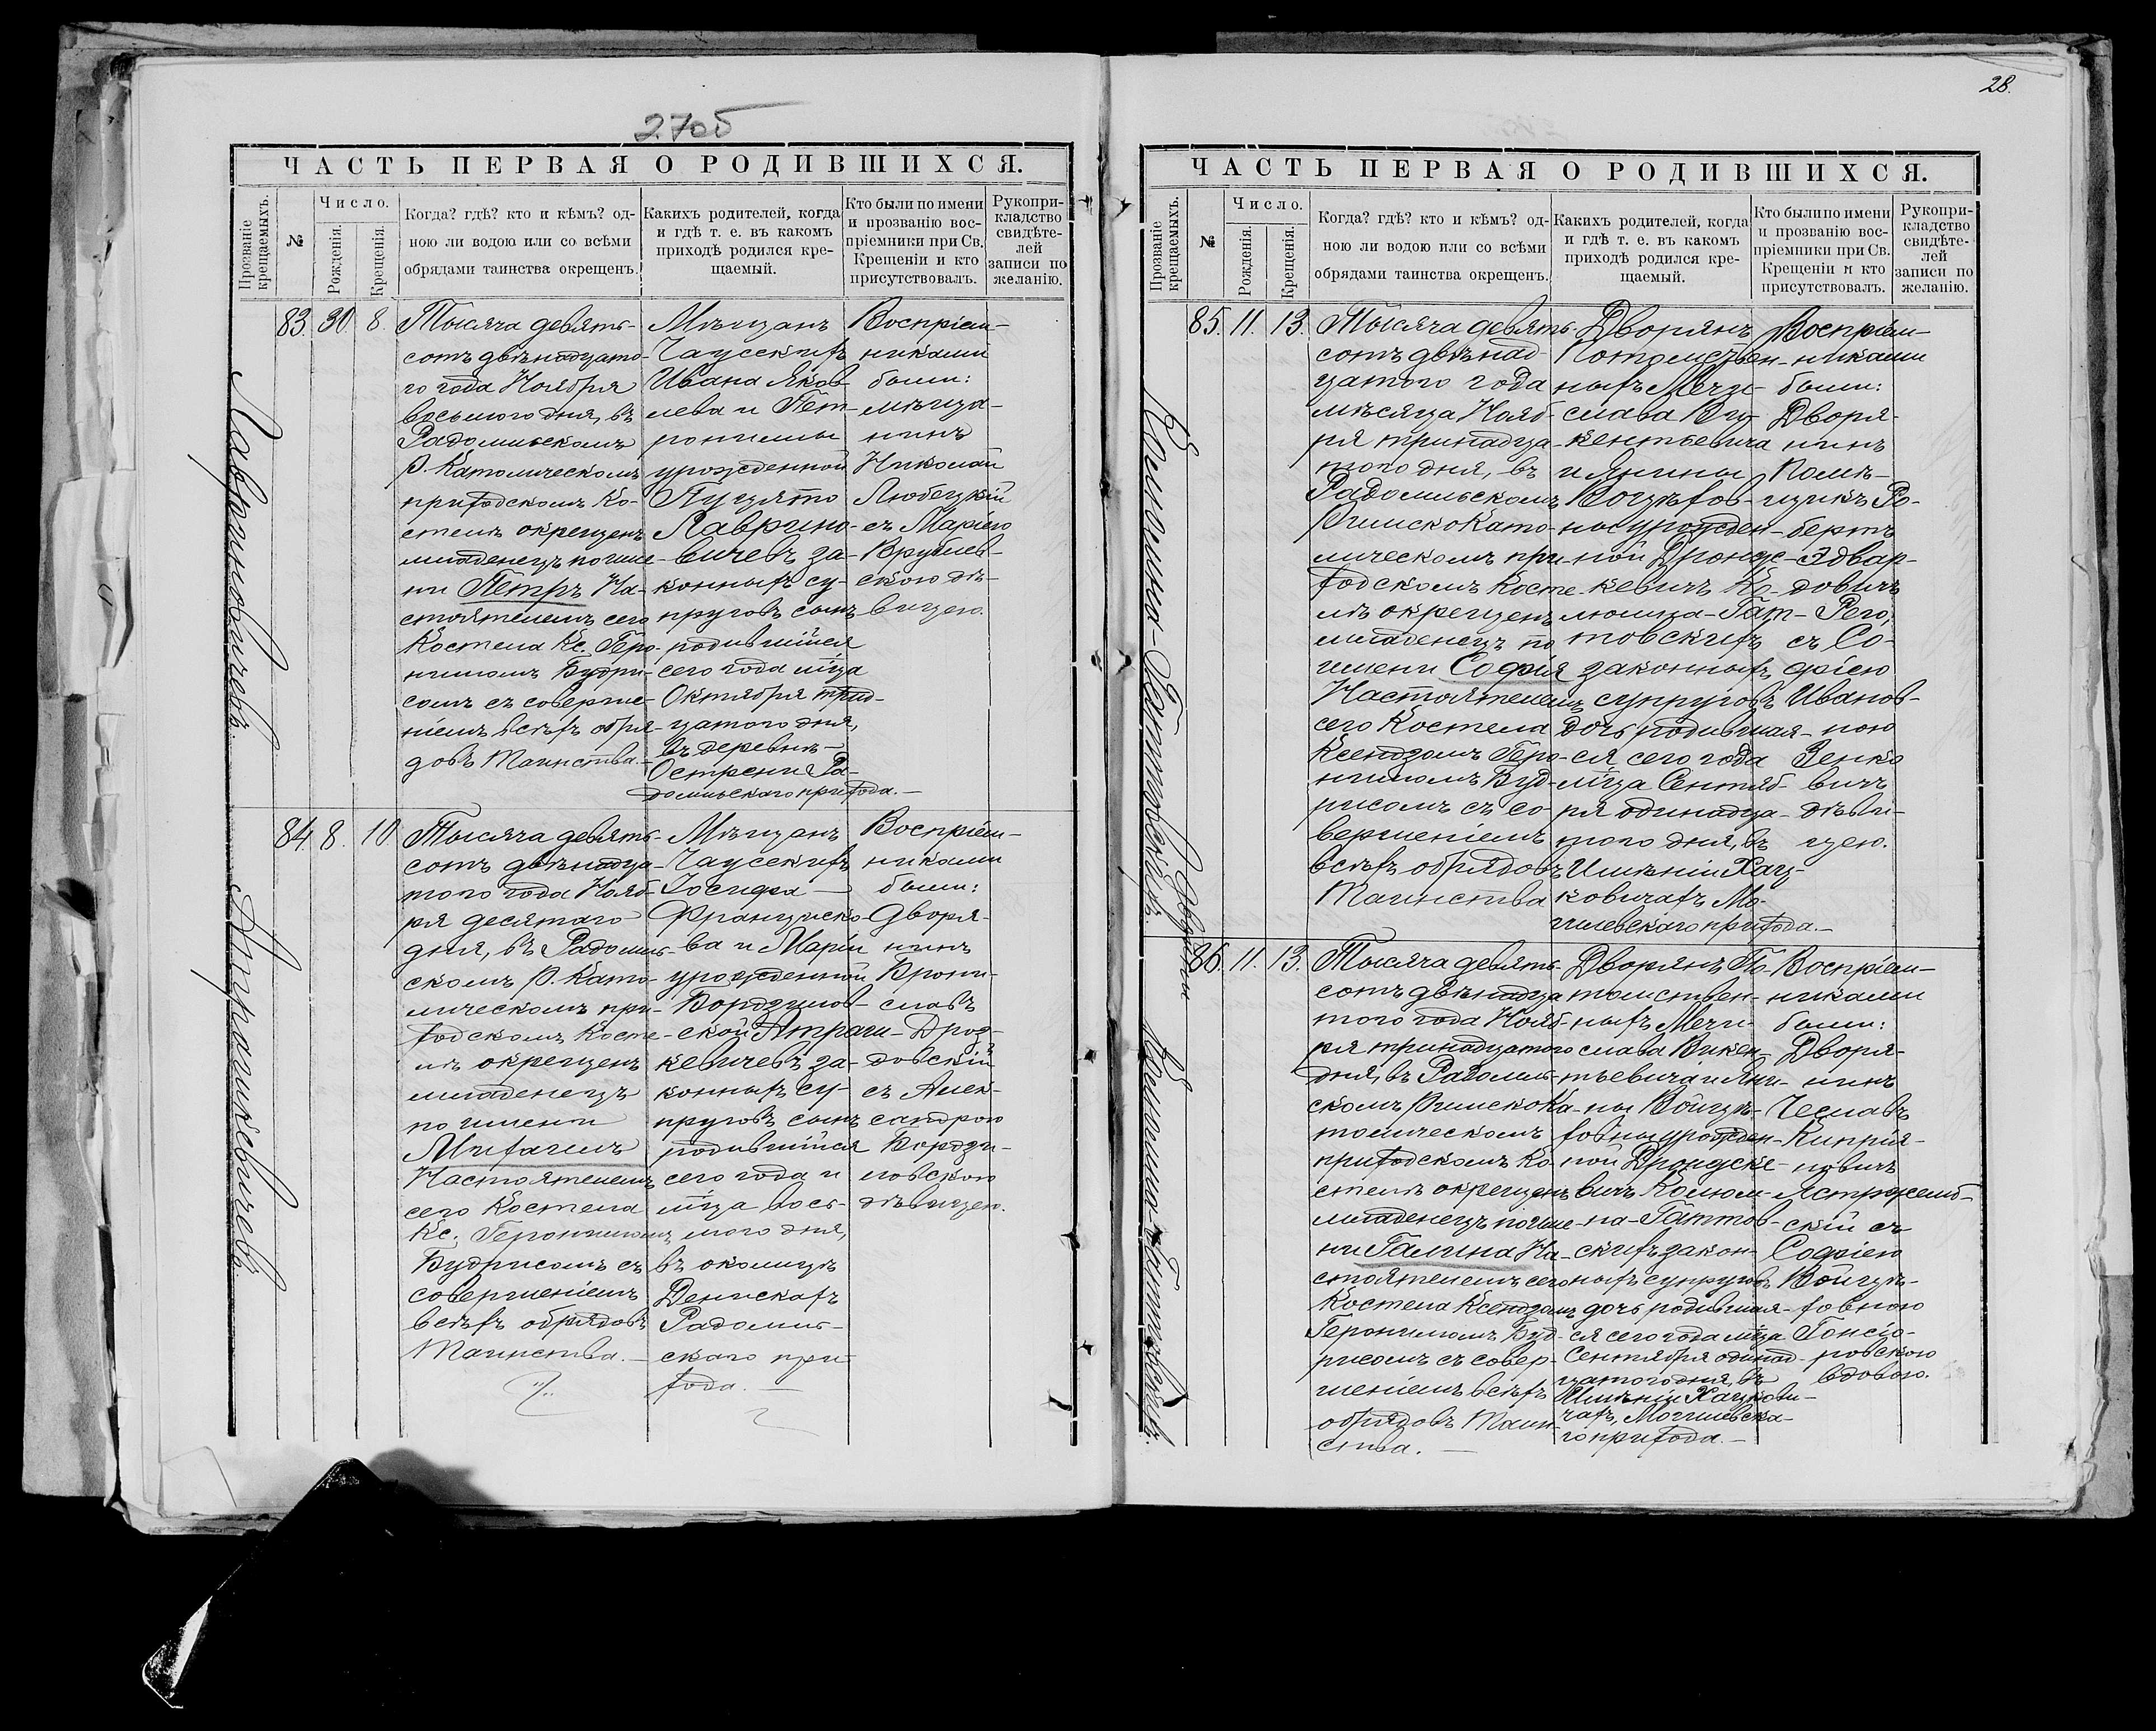 270б
ЧАСТЬ ПЕРВАЯ О РОДИВШИХСЯ.
Прозваніе крещаемыхъ.
№
Число.
Рожденія.
Крещенія.
Когда? гдѣ? кто и кѣмъ? од-
ною ли водою или со всѣми
обрядами таинства окрещенъ.
Какихъ родителей, когда
и гдѣ т. е. въ какомъ
приходѣ родился кре-
щаемый.
Кто были по имени
и прозванію вос-
пріемники при Св.
Крещеніи и кто
присутствовалъ.
Рукопри-
кладство
свидѣте-
лей
записи по
желанію.
Лавриновичевъ.
83. 30. 8.
Тысяча девять-
сотъ двѣнадцато-
го года Ноября
восьмого дня, въ
Радомльскомъ
Р. Католическомъ
приходскомъ Ко-
стелѣ окрещенъ
младенецъ по име-
ни Петръ На-
стоятелемъ сего
Костела Кс. Геро-
нимомъ Будри-
сомъ съ соверше-
ніемъ всѣхъ обря-
довъ Таинства.
Мѣщанъ
Чаусскихъ
Ивана Яков-
лева и Пет-
ронелы
урожденной
Пуцято
Лаврино-
вичевъ за-
конныхъ су-
пруговъ сынъ
родившійся
сего года мца
Октября трид-
цатого дня,
въ деревнѣ
Острени Ра-
домльскаго прихода.
Воспріем-
никами
были:
мѣща-
нинъ
Николай
Любецкій
съ Маріею
Врублев-
скою дѣ-
вицею.
Атрашкевичевъ.
84. 8. 10
Тысяча девять-
сотъ двѣнадца-
того года Нояб-
ря десятаго
дня, въ Радомль-
скомъ Р. Като-
лическомъ при-
ходскомъ Косте-
лѣ окрещенъ
младенецъ
по имени
Михаилъ
Настоятелемъ
сего Костела
Кс. Геронимомъ
Будрисомъ съ
совершеніемъ
всѣхъ обрядовъ
Таинства.
Мѣщанъ
Чаусскихъ
Іосифа
Франциско-
ва и Маріи
урожденной
Бордзилов-
ской Атраш-
кевичевъ за-
конныхъ су-
пруговъ сынъ
родившійся
сего года и
мца вось-
мого дня,
въ околицѣ
Денискахъ
Радомль-
скаго при-
хода.
Воспріем-
никами
были:
Дворя-
нинъ
Брони-
славъ
Дроз-
довскій
съ Алек-
сандрою
Бордзи-
ловскою
дѣвицею.
28.
ЧАСТЬ ПЕРВАЯ О РОДИВШИХСЯ.
Прозваніе крещаемыхъ.
№
Число.
Рожденія.
Крещенія.
Когда? гдѣ? кто и кѣмъ? од-
ною ли водою или со всѣми
обрядами таинства окрещенъ.
Какихъ родителей, когда
и гдѣ т. е. въ какомъ
приходѣ родился кре-
щаемый.
Кто были по имени
и прозванію вос-
пріемники при Св.
Крещеніи и кто
присутствовалъ.
Рукопри-
кладство
свидѣте-
лей
записи по
желанію.
Колюмна-Гаттовскихъ.
85. 11. 13.
Тысяча девять-
сотъ двѣнад-
цатого года
мѣсяца Нояб-
ря тринадца-
того дня, въ
Радомльскомъ
Римско Като-
лическомъ при-
ходскомъ Косте-
лѣ окрещенъ
младенецъ по
имени Софія
Настоятелемъ
сего Костела
Ксендзомъ Геро-
нимомъ Буд-
рисомъ съ со-
вершеніемъ
всѣхъ обрядовъ
Таинства
Дворянъ
Потомствен-
ныхъ Мечи-
слава Ви-
кентьевича
и Янины
Войцѣхов-
ны урожден-
ной Дронсе-
кевичъ Ко-
люмна-Гат-
товскихъ
законныхъ
супруговъ
дочь родившая-
ся сего года
мца Сентяб-
ря одинадца-
того дня, въ
Имѣніи Хац-
ковичахъ Мо-
гилевскаго прихода.
Воспріем-
никами
были:
Дворя-
нинъ
Помѣ-
щикъ Ро-
бертъ
Эдвар-
довичъ
Рего,
съ Со-
фіею
Иванов-
ною
Зенко
вичъ
дѣви-
цею.
Двойни
Колюмна-Гаттовскихъ.
86. 11. 13.
Тысяча девять-
сотъ двѣнадца
того года Нояб-
ря тринадцатого
дня, въ Радомль-
скомъ Римско Ка-
толическомъ
приходскомъ Ко-
стелѣ окрещенъ
младенецъ по име-
ни Галина На-
стоятелемъ сего
Костела Ксендзомъ
Геронимомъ Буд-
рисомъ съ совер-
шеніемъ всѣхъ
обрядовъ Таин-
ства.
Дворянъ По-
томствен-
ныхъ Мечи-
слава Викен-
тьевича и Яни-
ны Войцѣ-
ховны урожден-
ной Дрондске-
вичъ Колюм-
на-Гаттов-
скихъ закон-
ныхъ супруговъ
дочь родившая-
ся сего года мца
Сентября одинад-
цатого дня, въ
Имѣніи Хацкови-
чахъ, Могилевска-
го прихода.
Воспріем-
никами
были:
Дворя-
нинъ
Чеславъ
Кипрія-
новичъ
Ястржемб-
скій съ
Софіею
Войцѣ-
ховною
Гонсіо-
ровскою
вдовою.